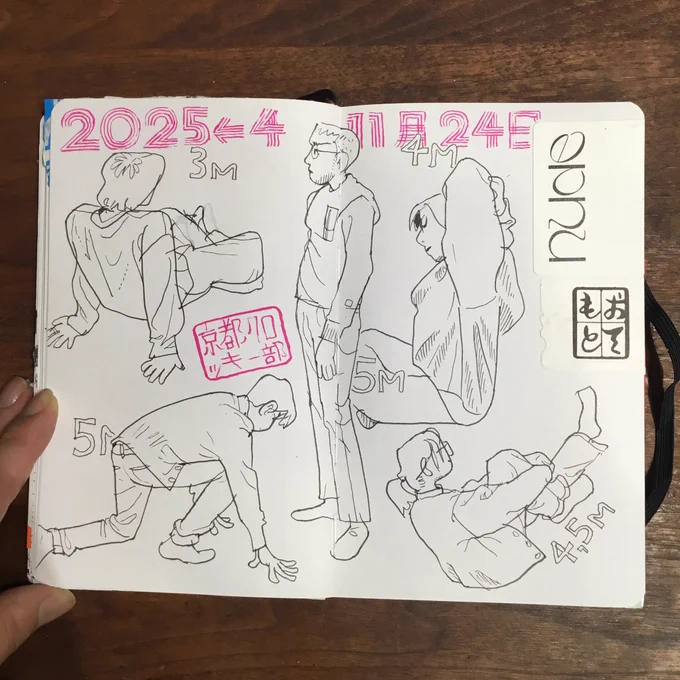 2025←4 11月24日
3M
4M
nude
おて
もと
京都クロ
ッキー部
5M
5M
4,5M